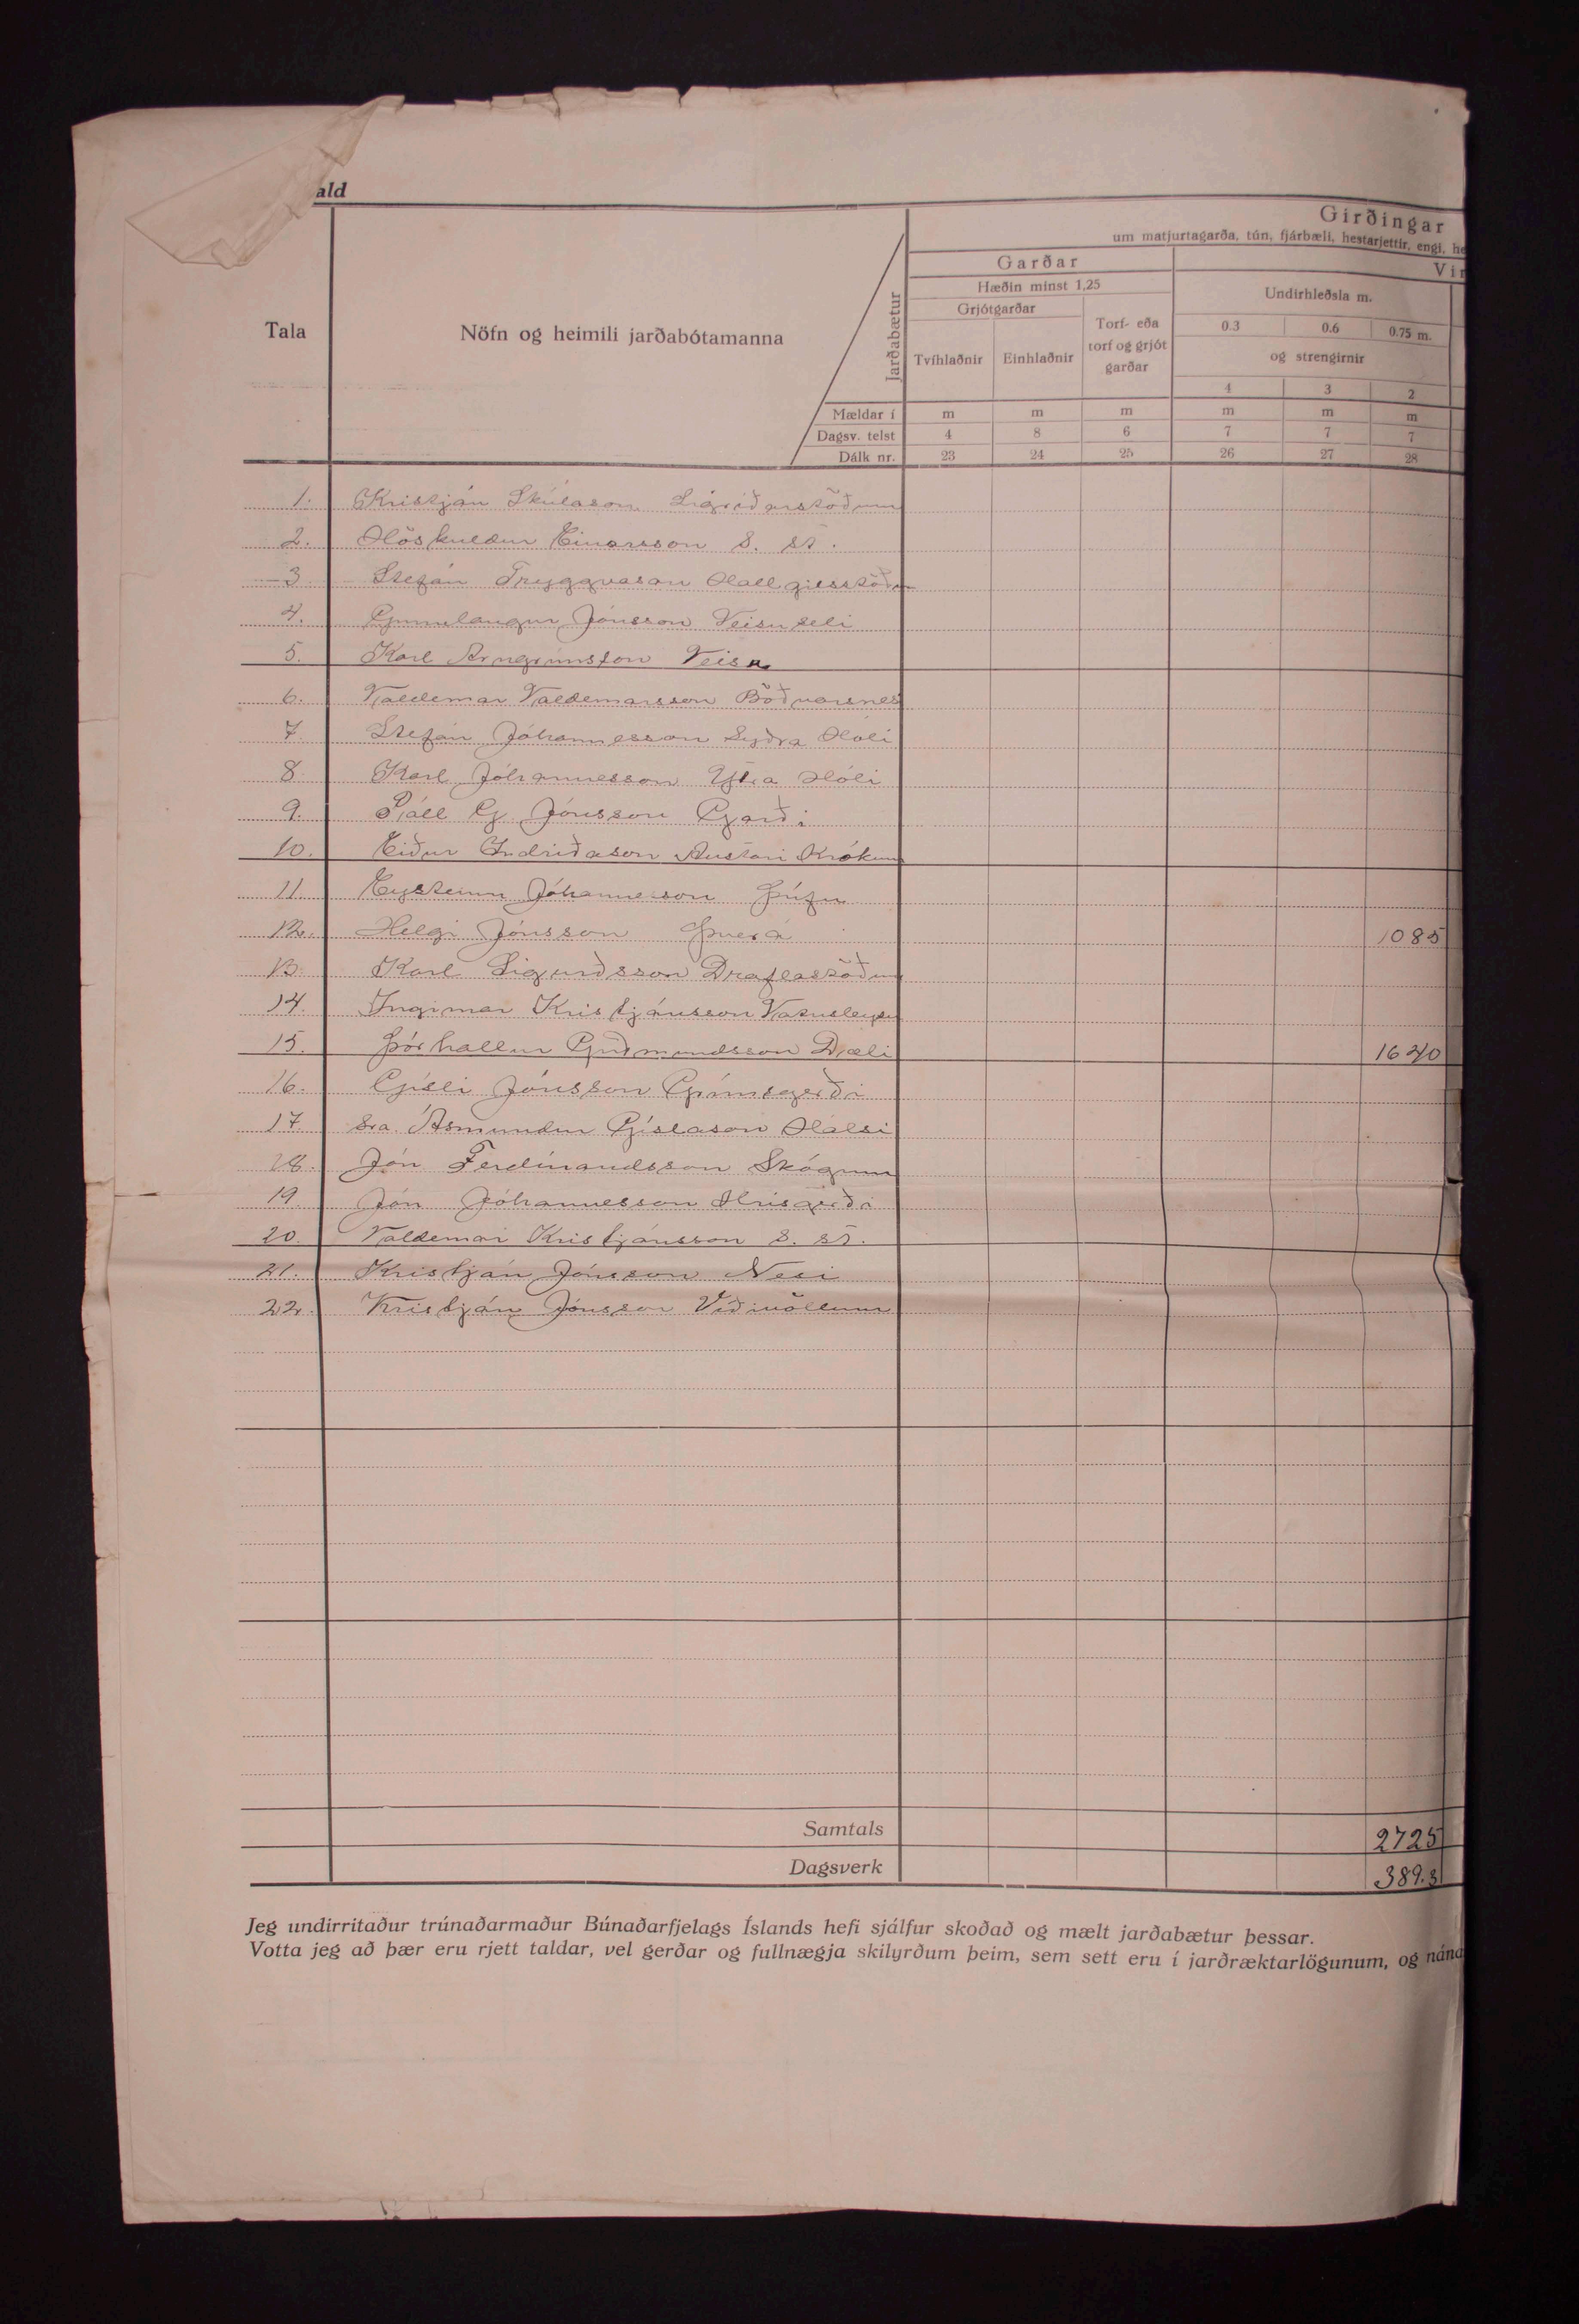 ald
Girðingar
um matjurtagarða, tún, fjárbæli, hestarjettir, engi, he
Garðar
Vír
Hæðin minst 1,25
Undirhleðsla m.
Grjótgarðar
Tala
Nöfn og heimili jarðabótamanna
Jarðabætur
Tvíhlaðnir
Einhlaðnir
Torf- eða torf og grjót garðar
0.3 0.6 0.75 m.
og strengirnir
4 3 2
Mældar í m m m m m m
Dagsv. telst 4 8 6 7 7 7
Dálk nr. 23 24 25 26 27 28
1. Kristján Skúlason Sigríðarstöðum
2. Höskuldur Einarsson s. st.
3 Stefán Tryggvason Hallgilsstöðum
4. Gunnlaugur Jónsson Veisuseli
5. Karl Arngrímsson Veisu
6. Valdemar Valdemarsson Böðvarsnesi
7 Stefán Jóhannesson Syðra Hóli
8 Karl Jóhannesson Ytra Hóli
9. Páll G. Jónsson Garði
10. Eiður Indriðason Austari Krókum
11. Eysteinn Jóhannesson Þúfu
12. Helgi Jónsson Þverá 1085
13. Karl Sigurðsson Draflastöðum
14. Ingimar Kristjánsson Vatnsleysu
15. Þórhallur Guðmundsson Dæli 1640
16. Gísli Jónsson Grímsgerði
17 Sra. Ásmundur Gíslason Hálsi
18. Jón Ferdínandsson Skógum
19. Jón Jóhannesson Hrísgerði
20. Valdemar Kristjánsson s. st.
21. Kristján Jónsson Nesi
22. Kristján Jónsson Víðivöllum
Samtals 2725
Dagsverk 389.3
Jeg undirritaður trúnaðarmaður Búnaðarfjelags Íslands hefi sjálfur skoðað og mælt jarðabætur þessar.
Votta jeg að þær eru rjett taldar, vel gerðar og fullnægja skilyrðum þeim, sem sett eru í jarðræktarlögunum, og nána